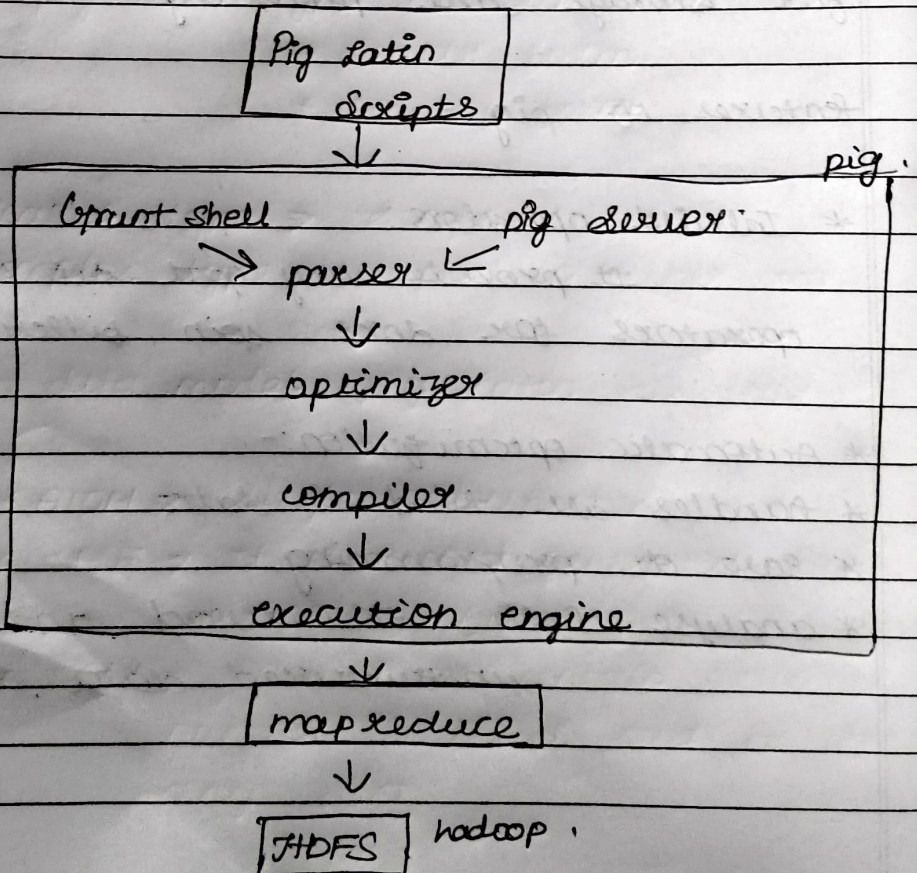 Pig Latin
Scripts
pig.
Grunt shell pig server.
parser
optimizer
compiler
execution engine
mapreduce
HDFS hadoop.